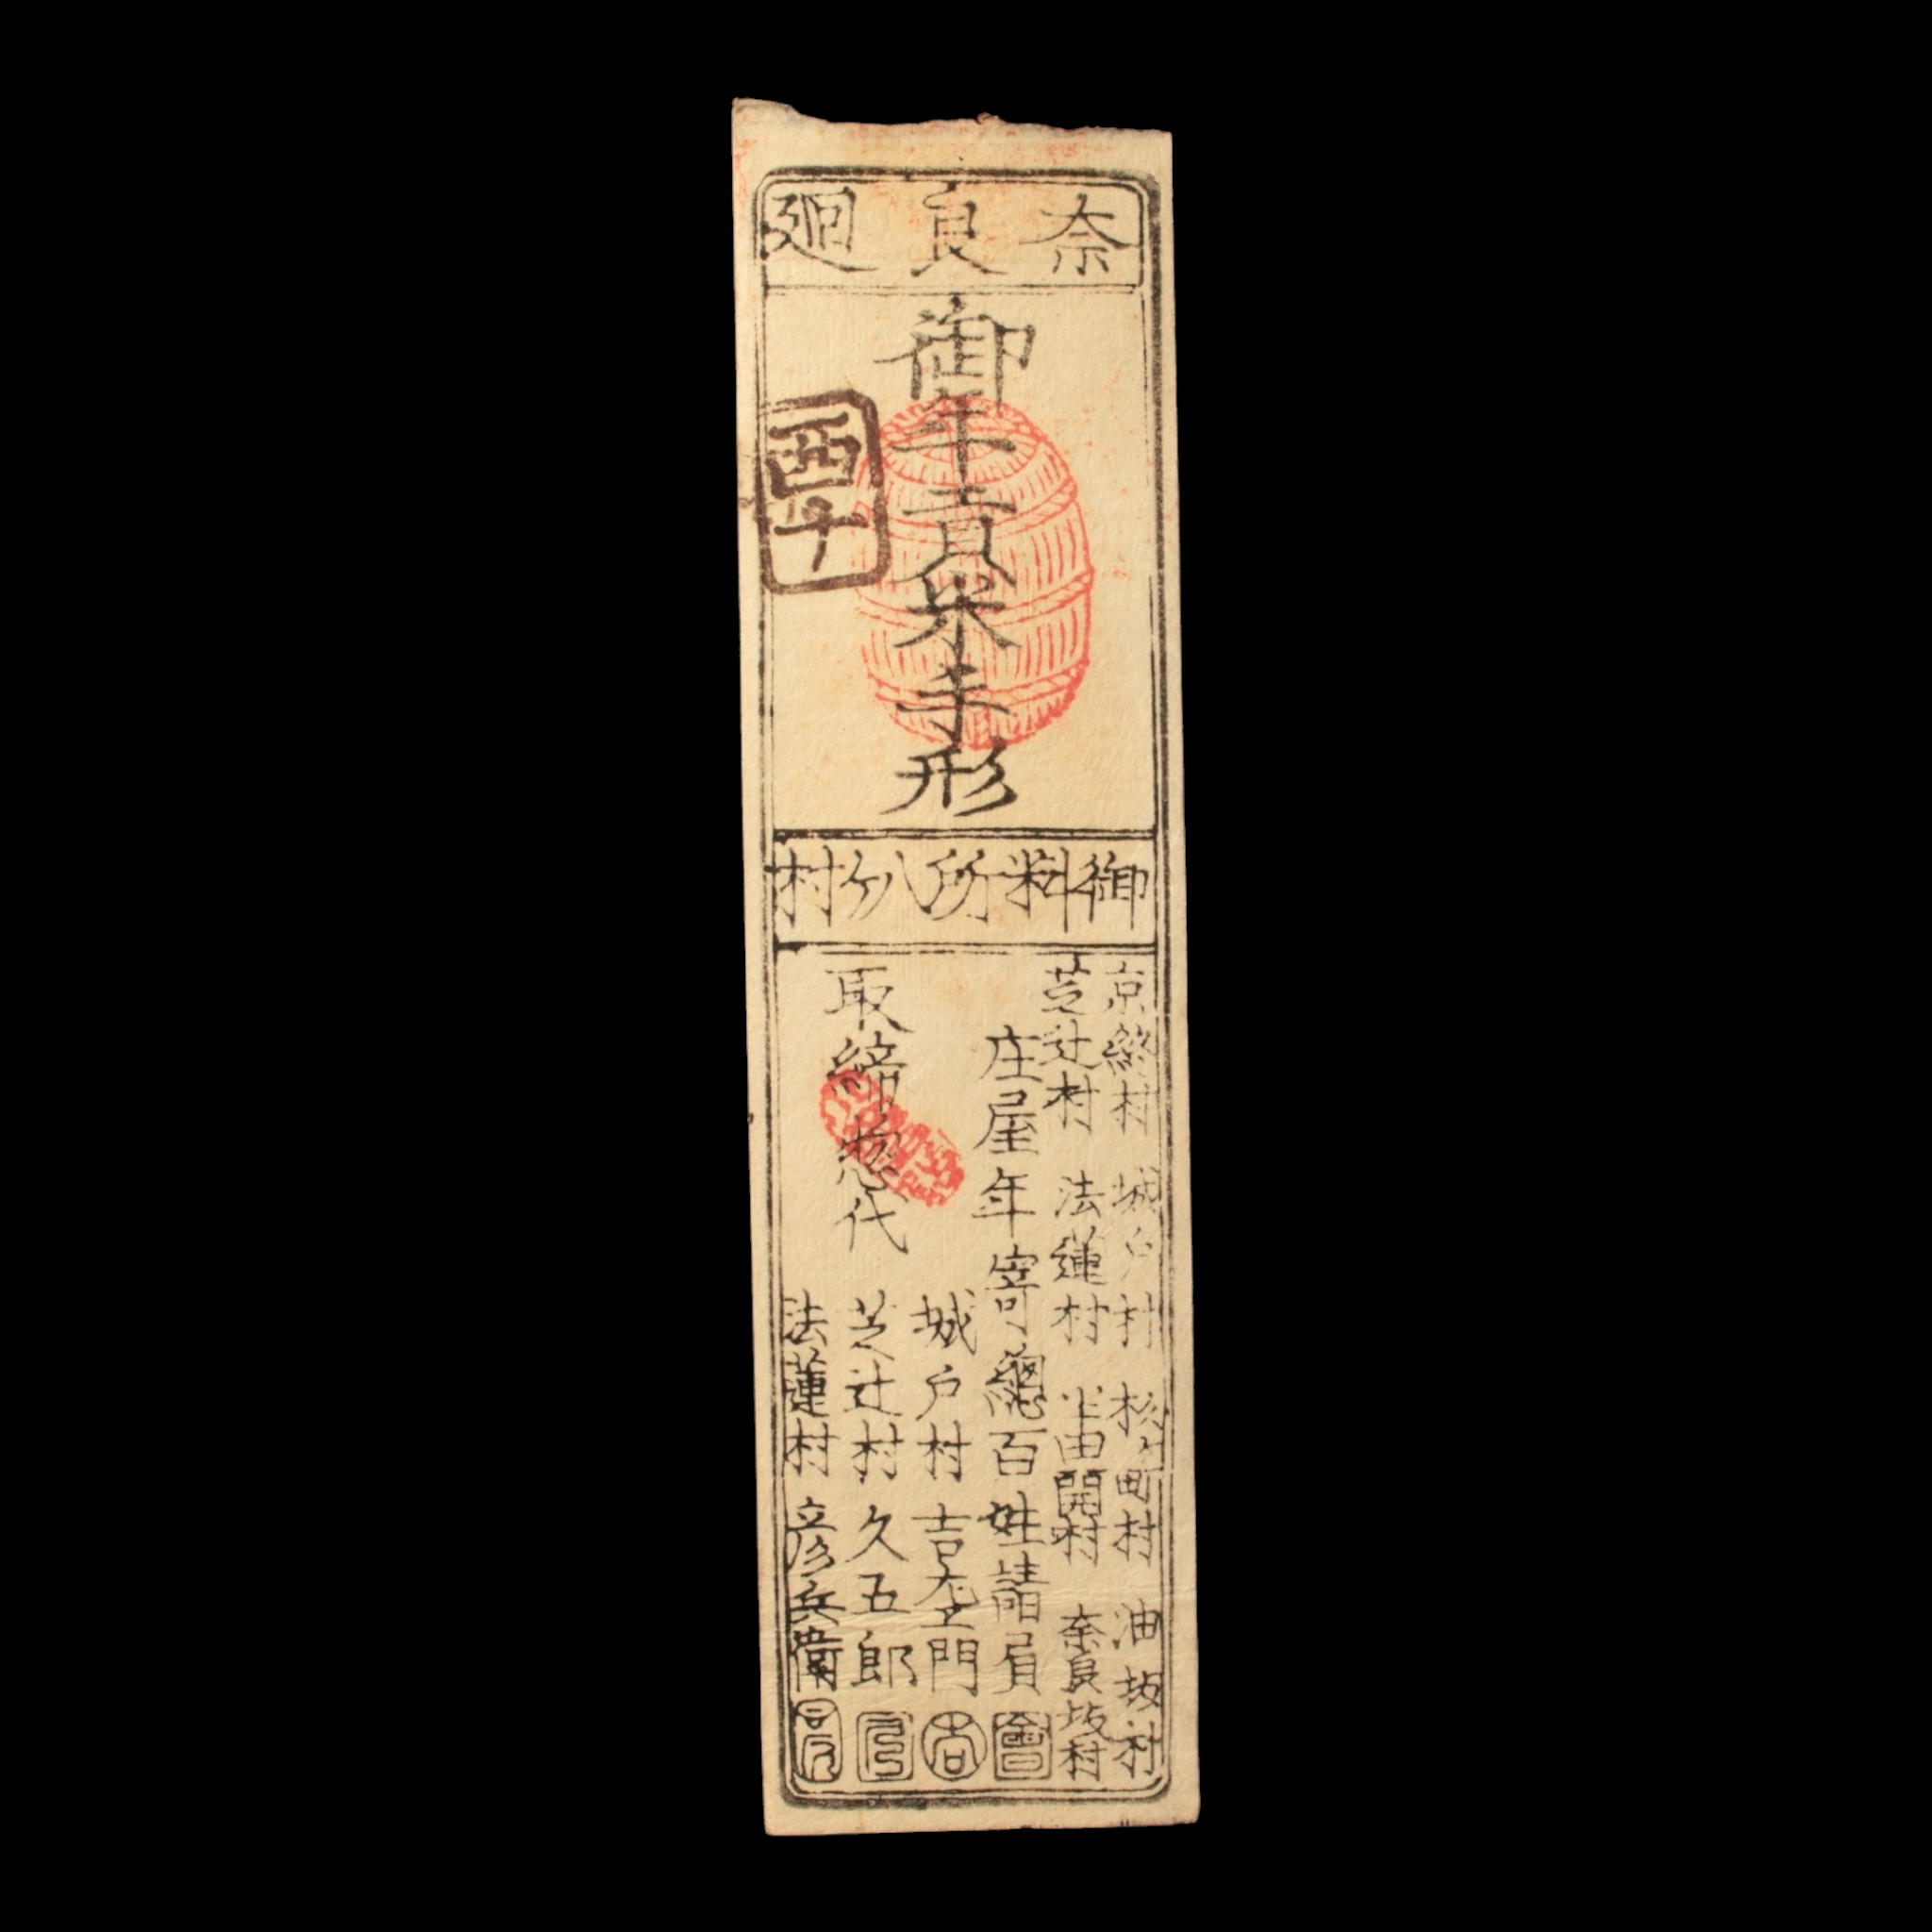 奈良廻
御年貢米手形
酉年
御料所八ケ村
京終村 城戸村 杉ケ町村 油坂村
芝辻村 法蓮村 半田開村 奈良坂村
庄屋年寄總百姓請負 會
取締惣代
城戸村 吉左エ門 吉
芝辻村 久五郎
法蓮村 彦兵衛